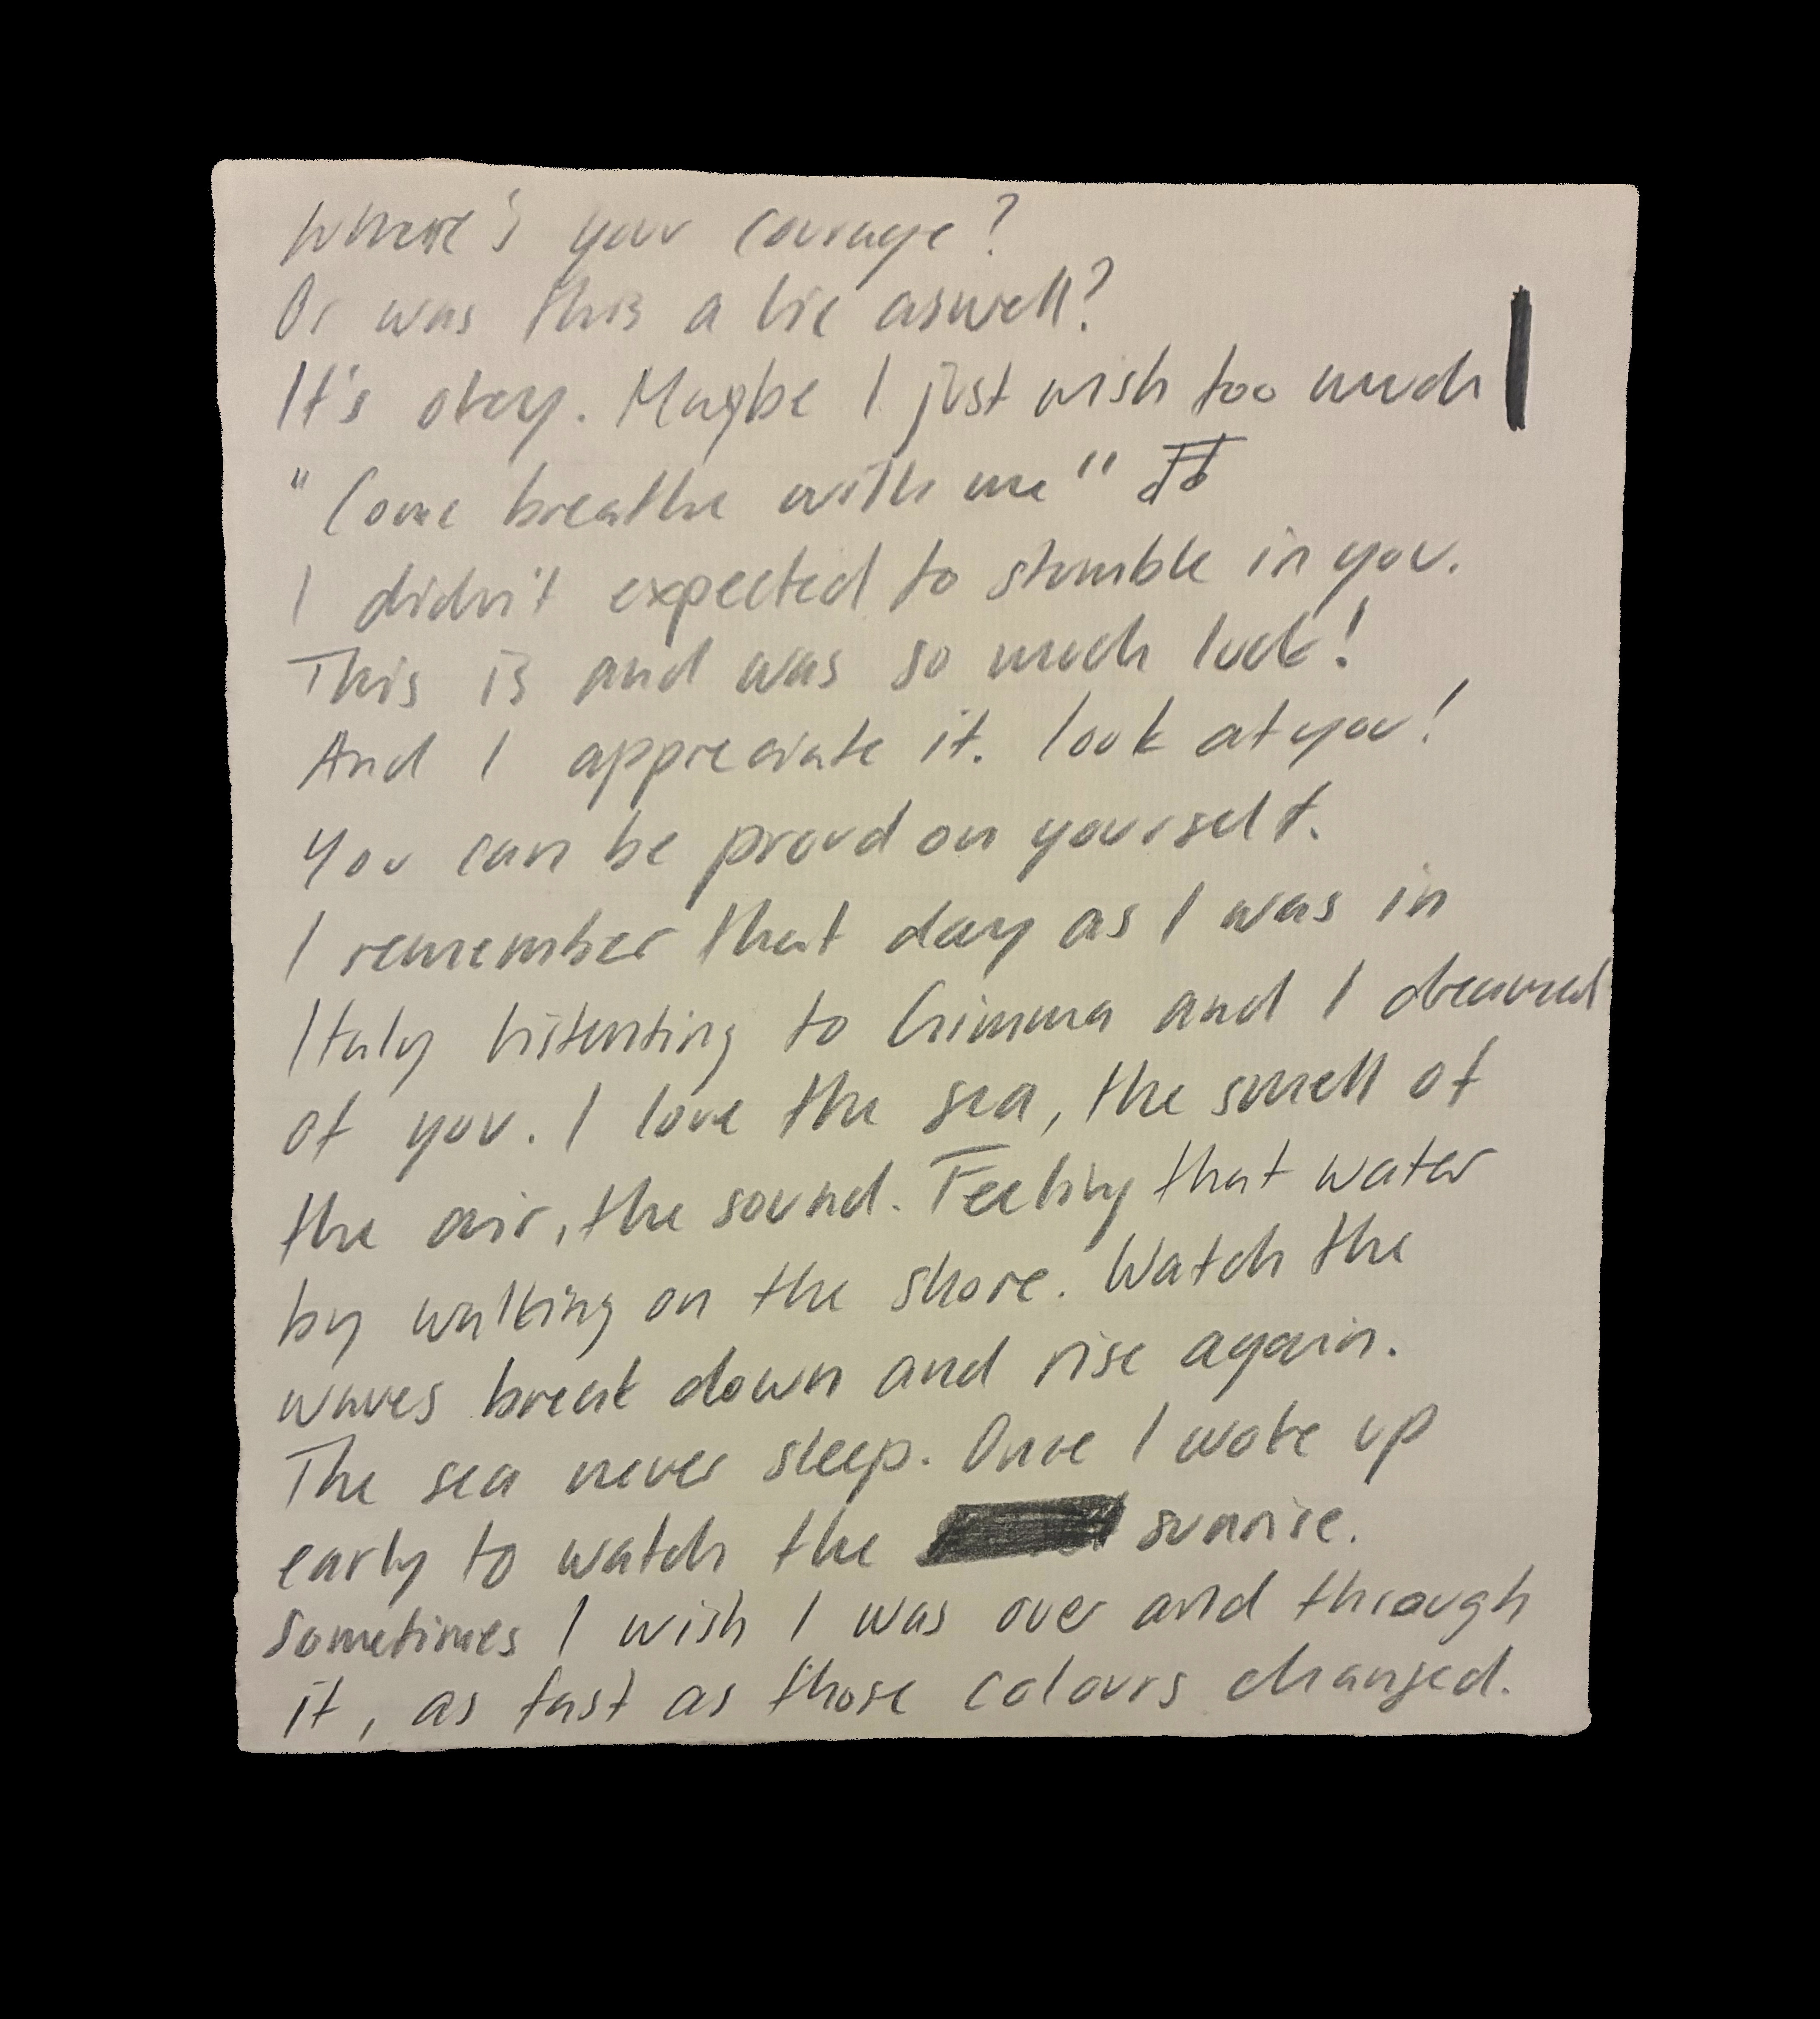 Where's your courage?
Or was this a lie aswell?
It's okay. Maybe I just wish too much
"Come breathe with me"
I didn't expected to stumble in you.
This is and was so much luck!
And I appreciate it. look at you!
You can be proud on yourself.
I remember that day as I was in
Italy to and I dreamed
of you. I love the sea, the smell of
the air, the sound. Feeling that water
by walking on the shore. Watch the
waves break down and rise again.
The sea never sleep. Once I woke up
early to watch the sunrise.
Sometimes I wish I was over and through
it, as fast as those colours changed.